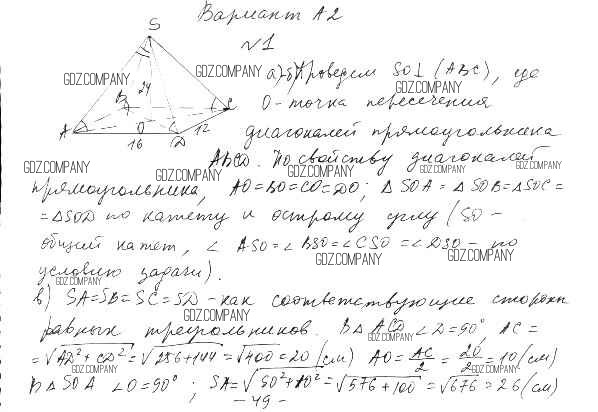 Вариант А2
№1
S
24
A
B
C
D
O
16
12
а)-б) Проведем SO⊥(ABC), где
O - точка пересечения
диагоналей прямоугольника
ABCD. По свойству диагоналей
прямоугольника, AO=BO=CO=DO; △SOA=△SOB=△SOC=
=△SOD по катету и острому углу (SO -
общий катет, ∠ASO=∠BSO=∠CSO=∠DSO - по
условию задачи).
в) SA=SB=SC=SD - как соответствующие стороны
равных треугольников. В △ACD ∠D=90°, AC=
=√AD²+CD²=√256+144=√400=20 (см) AO=AC/2=20/2=10 (см)
В △SOA ∠O=90°; SA=√SO²+AO²=√576+100=√676=26 (см)
- 49 -
GDZ.COMPANY
GDZ.COMPANY
GDZ.COMPANY
GDZ.COMPANY
GDZ.COMPANY
GDZ.COMPANY
GDZ.COMPANY
GDZ.COMPANY
GDZ.COMPANY
GDZ.COMPANY
GDZ.COMPANY
GDZ.COMPANY
GDZ.COMPANY
GDZ.COMPANY